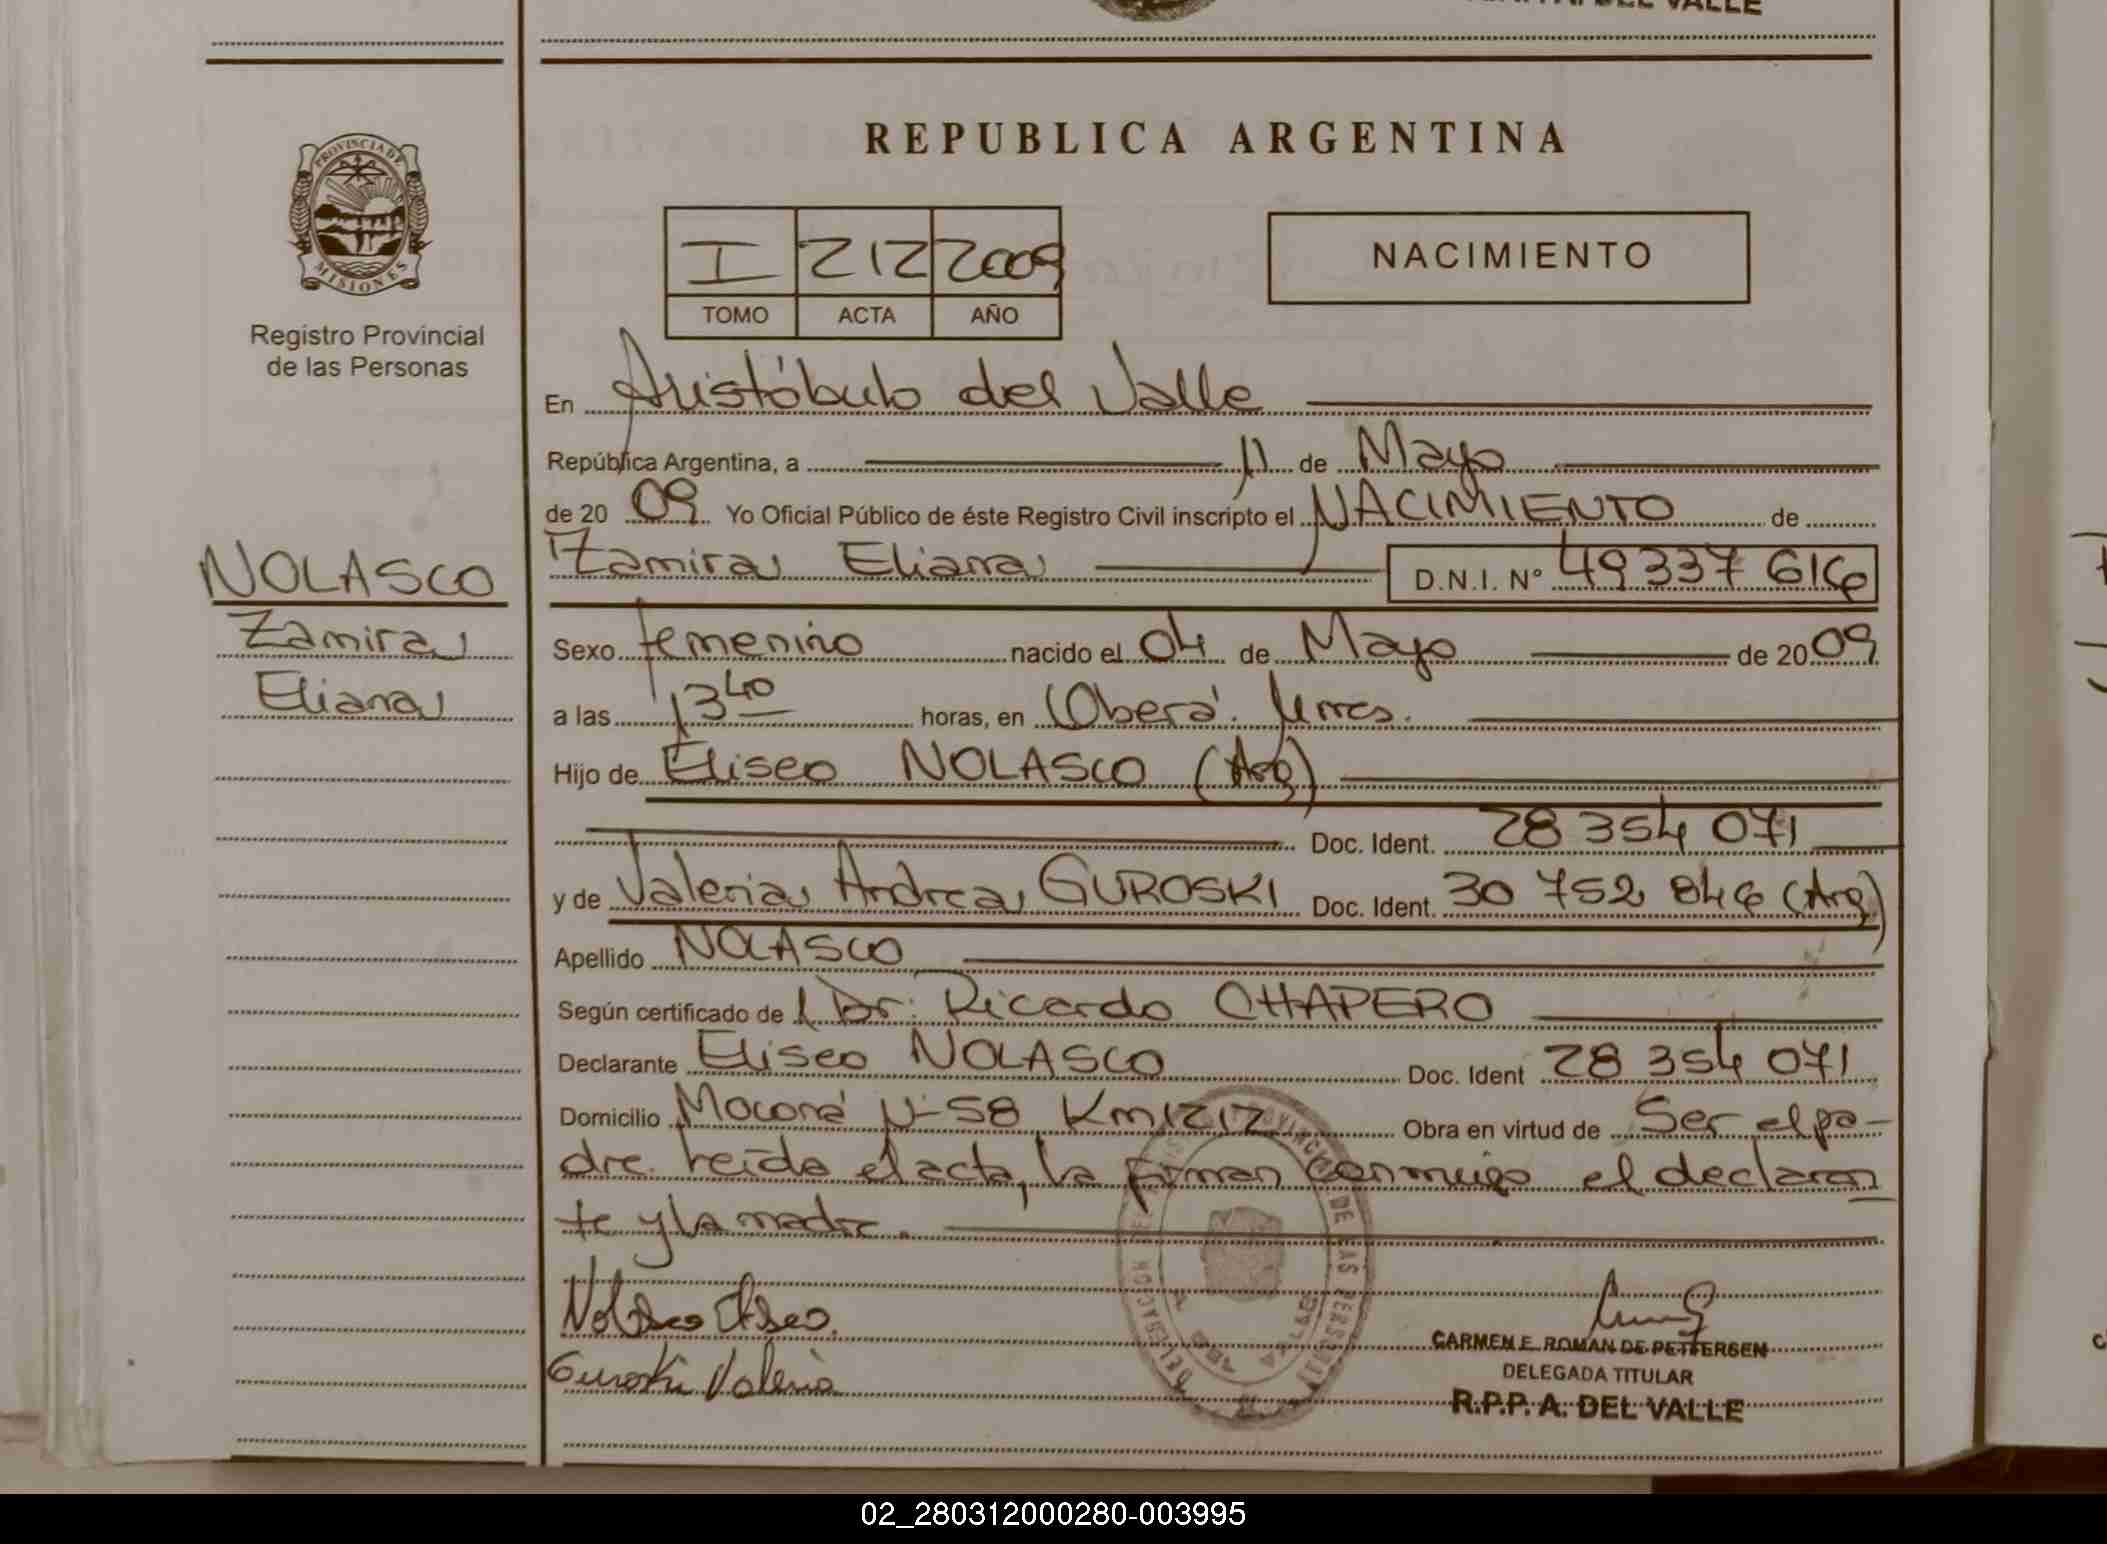 DEL VALLE
REPUBLICA ARGENTINA
PROVINCIA DE
MISIONES
Registro Provincial
de las Personas
I 212 2009
TOMO ACTA AÑO
NACIMIENTO
En Aristóbulo del Valle
República Argentina, a 11 de Mayo
de 20 09 Yo Oficial Público de éste Registro Civil inscripto el NACIMIENTO de
Zamira Eliana D.N.I. Nº 49337616
NOLASCO
Zamira
Eliana
Sexo femenino nacido el 04 de Mayo de 20 09
a las 13 40 horas, en Oberá. Mnes.
Hijo de Eliseo NOLASCO (Arg)
Doc. Ident. 28 354 071
y de Valeria Andrea GUROSKI Doc. Ident. 30 752 846 (Arg)
Apellido NOLASCO
Según certificado de Dr. Ricardo CHAPERO
Declarante Eliseo NOLASCO Doc. Ident 28 354 071
Domicilio Moconá Nº 58 Km 1212 Obra en virtud de Ser el pa-
dre. Leída el acta, la firman conmigo el declaran
te y la madre.
Nolasco Eliseo
Guroski Valeria
CARMEN E. ROMAN DE PETTERSEN
DELEGADA TITULAR
R.P.P. A. DEL VALLE
02_280312000280-003995